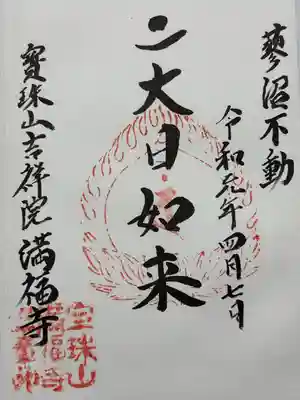 蓼沼不動
令和元年四月七日
二大日如来
寳珠山吉祥院満福寺
宝珠山
満福寺